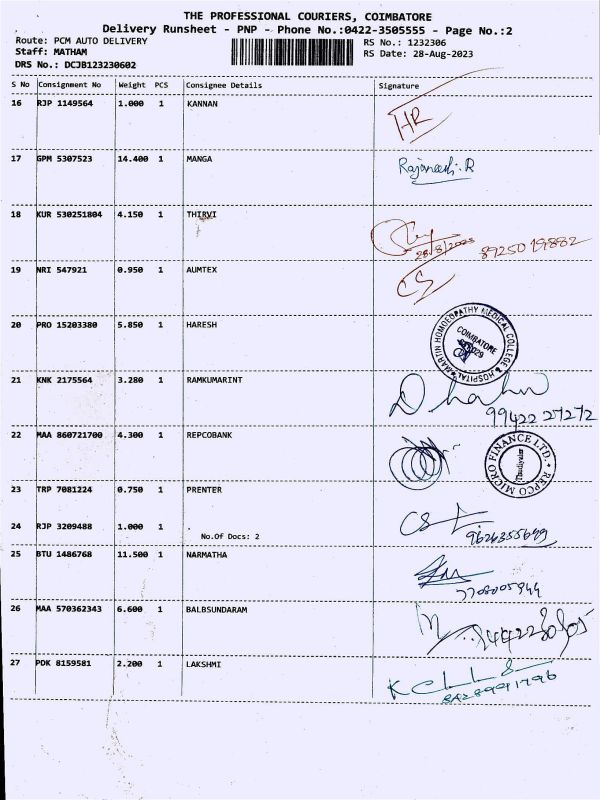 THE PROFESSIONAL COURIERS, COIMBATORE
Delivery Runsheet - PNP - Phone No.:0422-3505555 - Page No.:2
Route: PCM AUTO DELIVERY
Staff: MATHAM
DRS No.: DCJB123230602
RS No.: 1232306
RS Date: 28-Aug-2023
S No Consignment No Weight PCS Consignee Details Signature
16 RJP 1149564 1.000 1 KANNAN HR
17 GPM 5307523 14.400 1 MANGA
18 KUR 530251804 4.150 1 THIRVI
28/8/2023 8925019882
19 NRI 547921 0.950 1 AUMTEX CS
20 PRO 15203380 5.850 1 HARESH
MARTIN HOMOEOPATHY MEDICAL COLLEGE & HOSPITAL
COIMBATORE
21 KNK 2175564 3.280 1 RAMKUMARINT
99422 27272
22 MAA 860721700 4.300 1 REPCOBANK
REPCO MICRO FINANCE LTD.
23 TRP 7081224 0.750 1 PRENTER
24 RJP 3209488 1.000 1
No.Of Docs: 2
25 BTU 1486768 11.500 1 NARMATHA
26 MAA 570362343 6.600 1 BALBSUNDARAM
27 PDK 8159581 2.200 1 LAKSHMI